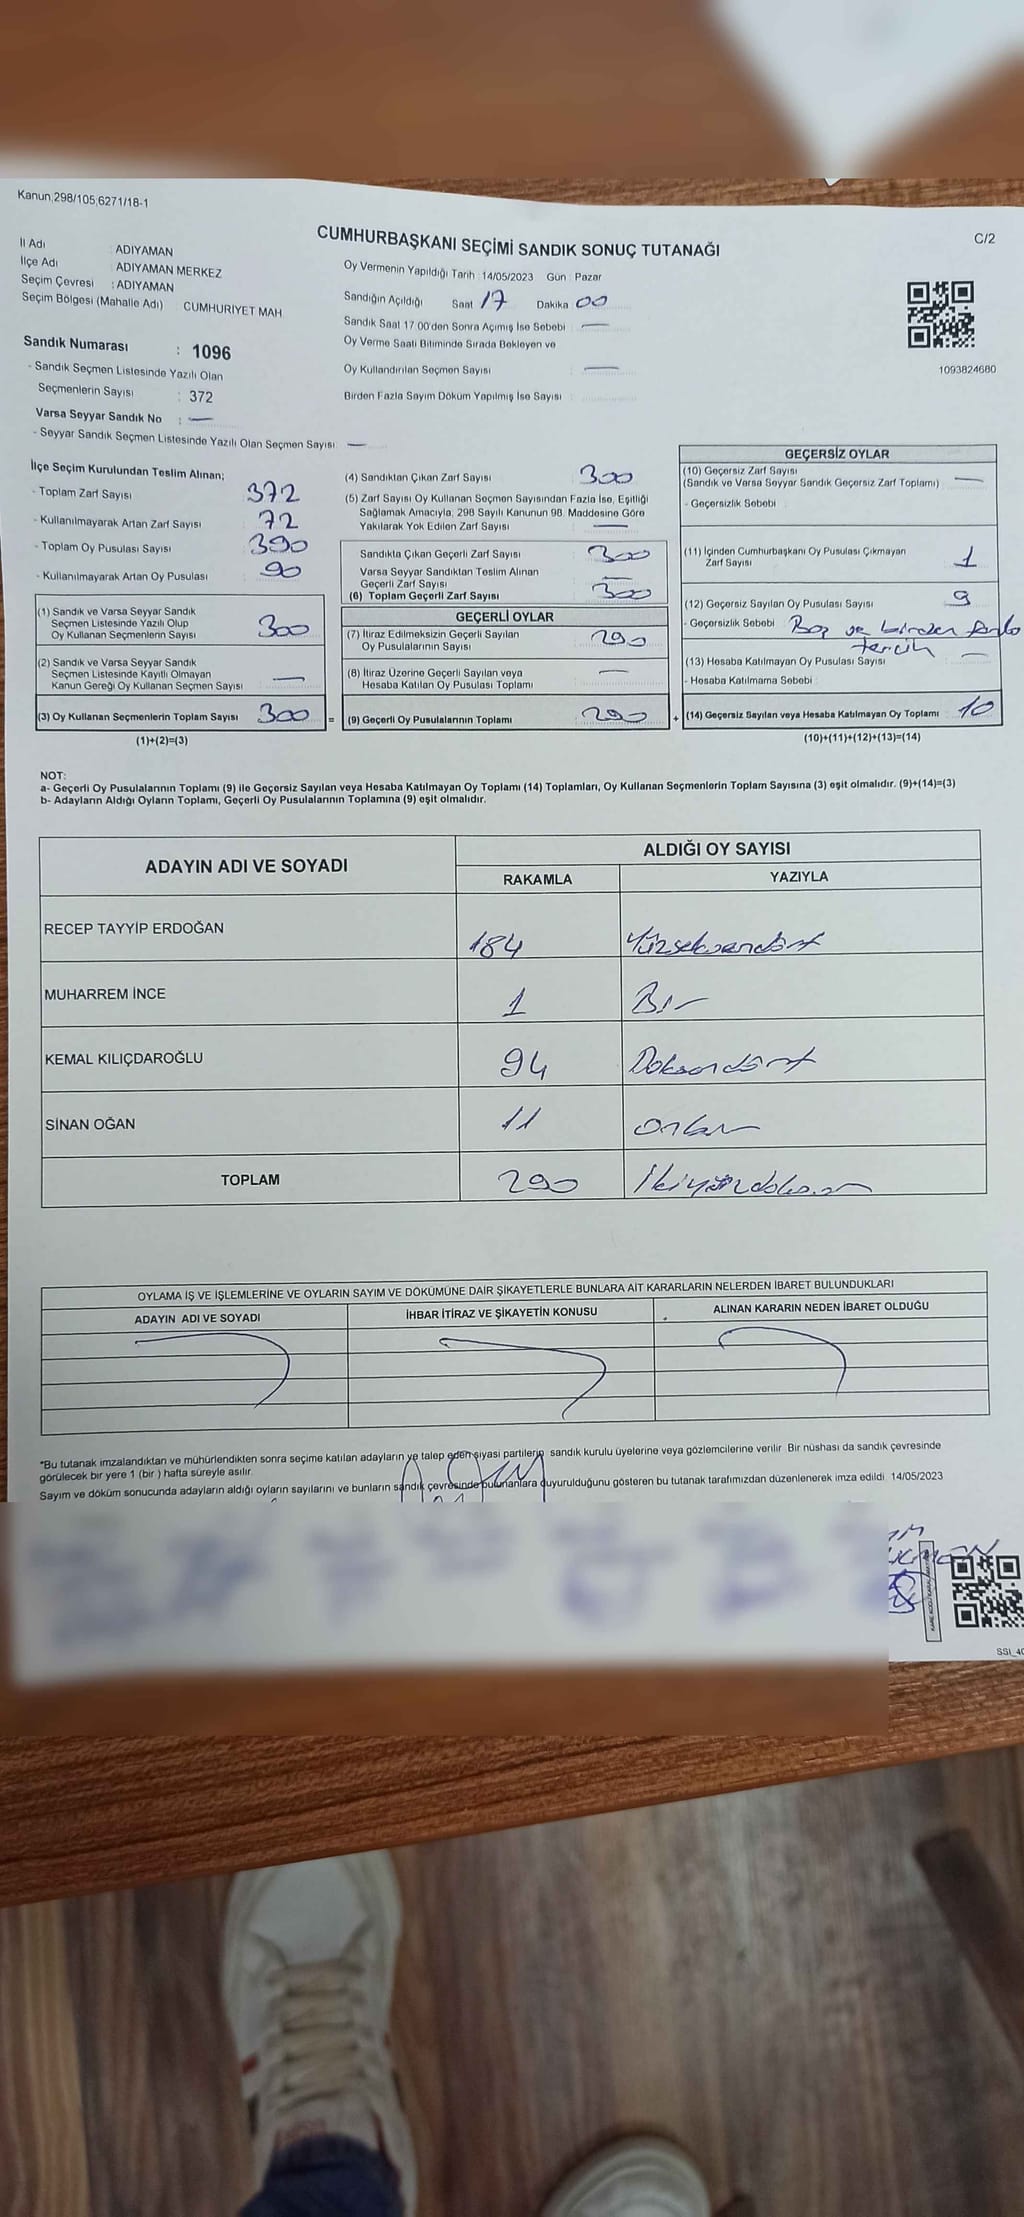 Kanun;298/105,6271/18-1
C/2
CUMHURBAŞKANI SEÇİMİ SANDIK SONUÇ TUTANAĞI
İl Adı ADIYAMAN
İlçe Adı : ADIYAMAN MERKEZ
Seçim Çevresi : ADIYAMAN
Seçim Bölgesi (Mahalle Adı) CUMHURIYET MAH
Sandık Numarası : 1096
- Sandık Seçmen Listesinde Yazılı Olan
Seçmenlerin Sayısı : 372
Varsa Seyyar Sandık No : —
- Seyyar Sandık Seçmen Listesinde Yazılı Olan Seçmen Sayısı : —
Oy Vermenin Yapıldığı Tarih : 14/05/2023 Gün : Pazar
Sandığın Açıldığı Saat 17 Dakika 00
Sandık Saat 17 00'den Sonra Açımış İse Sebebi : —
Oy Verme Saati Bitiminde Sırada Bekleyen ve
Oy Kullandırılan Seçmen Sayısı : —
Birden Fazla Sayım Döküm Yapılmış İse Sayısı :
1093824680
İlçe Seçim Kurulundan Teslim Alınan;
- Toplam Zarf Sayısı 372
- Kullanılmayarak Artan Zarf Sayısı 72
- Toplam Oy Pusulası Sayısı 390
- Kullanılmayarak Artan Oy Pusulası 90
(1) Sandık ve Varsa Seyyar Sandık
Seçmen Listesinde Yazılı Olup
Oy Kullanan Seçmenlerin Sayısı 300
(2) Sandık ve Varsa Seyyar Sandık
Seçmen Listesinde Kayıtlı Olmayan
Kanun Gereği Oy Kullanan Seçmen Sayısı —
(3) Oy Kullanan Seçmenlerin Toplam Sayısı 300 =
(1)+(2)=(3)
(4) Sandıktan Çıkan Zarf Sayısı 300
(5) Zarf Sayısı Oy Kullanan Seçmen Sayısından Fazla İse, Eşitliği
Sağlamak Amacıyla, 298 Sayılı Kanunun 98. Maddesine Göre
Yakılarak Yok Edilen Zarf Sayısı —
Sandıkta Çıkan Geçerli Zarf Sayısı 300
Varsa Seyyar Sandıktan Teslim Alınan
Geçerli Zarf Sayısı —
(6) Toplam Geçerli Zarf Sayısı 300
GEÇERLİ OYLAR
(7) İtiraz Edilmeksizin Geçerli Sayılan
Oy Pusulalarının Sayısı 290
(8) İtiraz Üzerine Geçerli Sayılan veya
Hesaba Katılan Oy Pusulası Toplamı —
(9) Geçerli Oy Pusulalarının Toplamı 290 +
GEÇERSİZ OYLAR
(10) Geçersiz Zarf Sayısı
(Sandık ve Varsa Seyyar Sandık Geçersiz Zarf Toplamı) —
- Geçersizlik Sebebi
(11) İçinden Cumhurbaşkanı Oy Pusulası Çıkmayan
Zarf Sayısı 1
(12) Geçersiz Sayılan Oy Pusulası Sayısı 9
- Geçersizlik Sebebi Boş ve birden fazla
tercih
(13) Hesaba Katılmayan Oy Pusulası Sayısı —
- Hesaba Katılmama Sebebi
(14) Geçersiz Sayılan veya Hesaba Katılmayan Oy Toplamı 10
(10)+(11)+(12)+(13)=(14)
NOT:
a- Geçerli Oy Pusulalarının Toplamı (9) ile Geçersiz Sayılan veya Hesaba Katılmayan Oy Toplamı (14) Toplamları, Oy Kullanan Seçmenlerin Toplam Sayısına (3) eşit olmalıdır. (9)+(14)=(3)
b- Adayların Aldığı Oyların Toplamı, Geçerli Oy Pusulalarının Toplamına (9) eşit olmalıdır.
ADAYIN ADI VE SOYADI ALDIĞI OY SAYISI
RAKAMLA YAZIYLA
RECEP TAYYİP ERDOĞAN 184 Yüzseksendört
MUHARREM İNCE 1 Bir
KEMAL KILIÇDAROĞLU 94 Doksandört
SİNAN OĞAN 11 onbir
TOPLAM 290 İkiyüzdoksan
OYLAMA İŞ VE İŞLEMLERİNE VE OYLARIN SAYIM VE DÖKÜMÜNE DAİR ŞİKAYETLERLE BUNLARA AİT KARARLARIN NELERDEN İBARET BULUNDUKLARI
ADAYIN ADI VE SOYADI İHBAR İTİRAZ VE ŞİKAYETİN KONUSU ALINAN KARARIN NEDEN İBARET OLDUĞU
*Bu tutanak imzalandıktan ve mühürlendikten sonra seçime katılan adayların ve talep eden siyasi partilerin sandık kurulu üyelerine veya gözlemcilerine verilir Bir nüshası da sandık çevresinde
görülecek bir yere 1 (bir ) hafta süreyle asılır.
Sayım ve döküm sonucunda adayların aldığı oyların sayılarını ve bunların sandık çevresinde bulunanlara duyurulduğunu gösteren bu tutanak tarafımızdan düzenlenerek imza edildi 14/05/2023